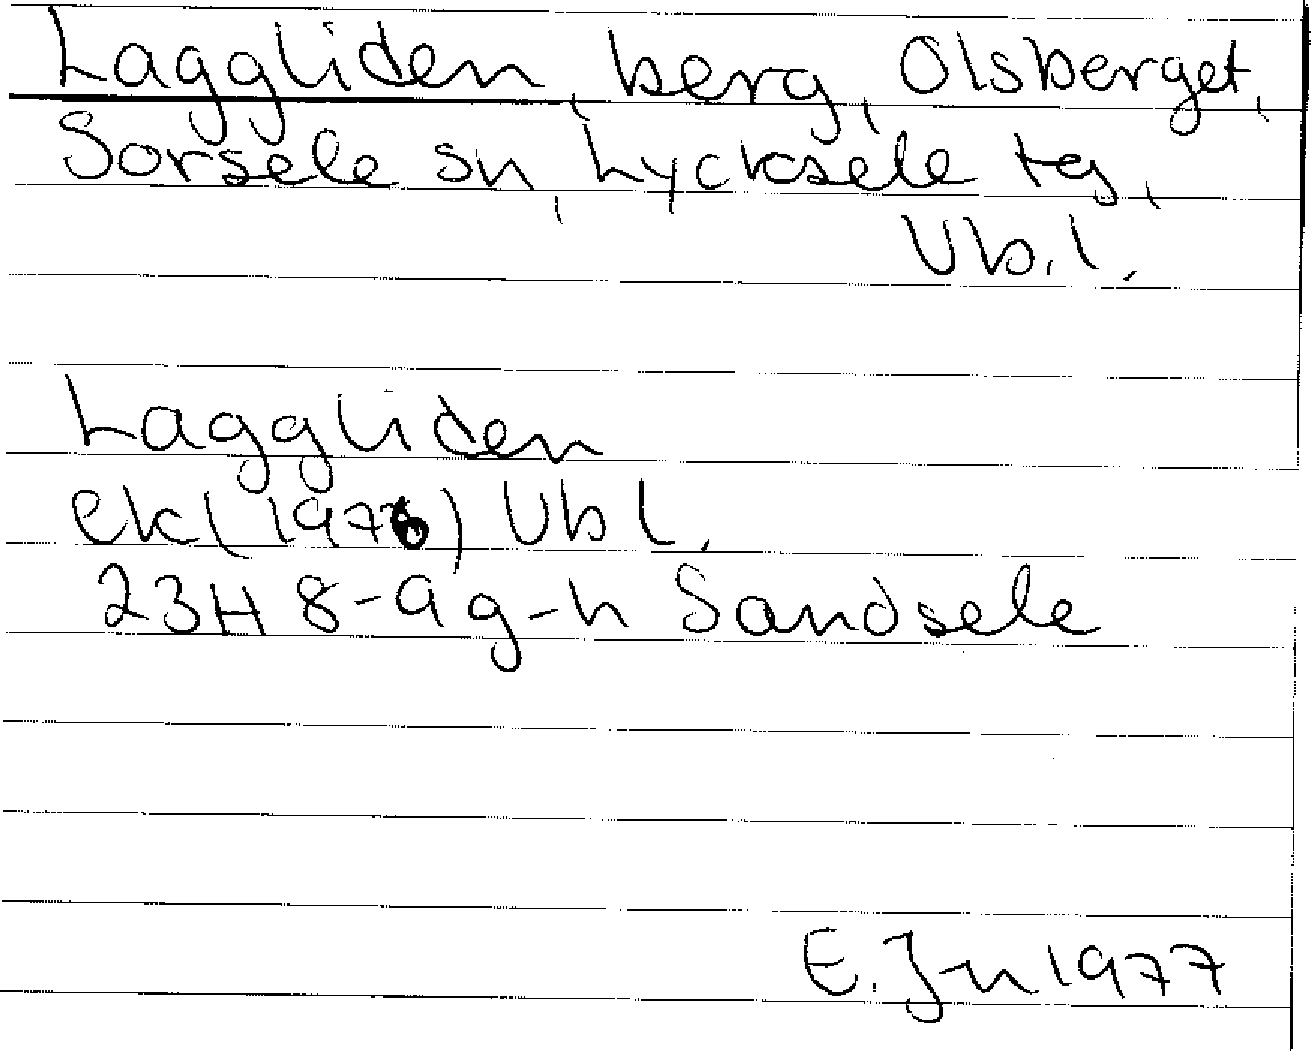 Laggliden, berg, Olsberget,
Sorsele sn, Lycksele tg,
Vb. l.
Laggliden
ek (1976) Vb l.
23H 8-9 g-h Sandsele
E. Jn 1977